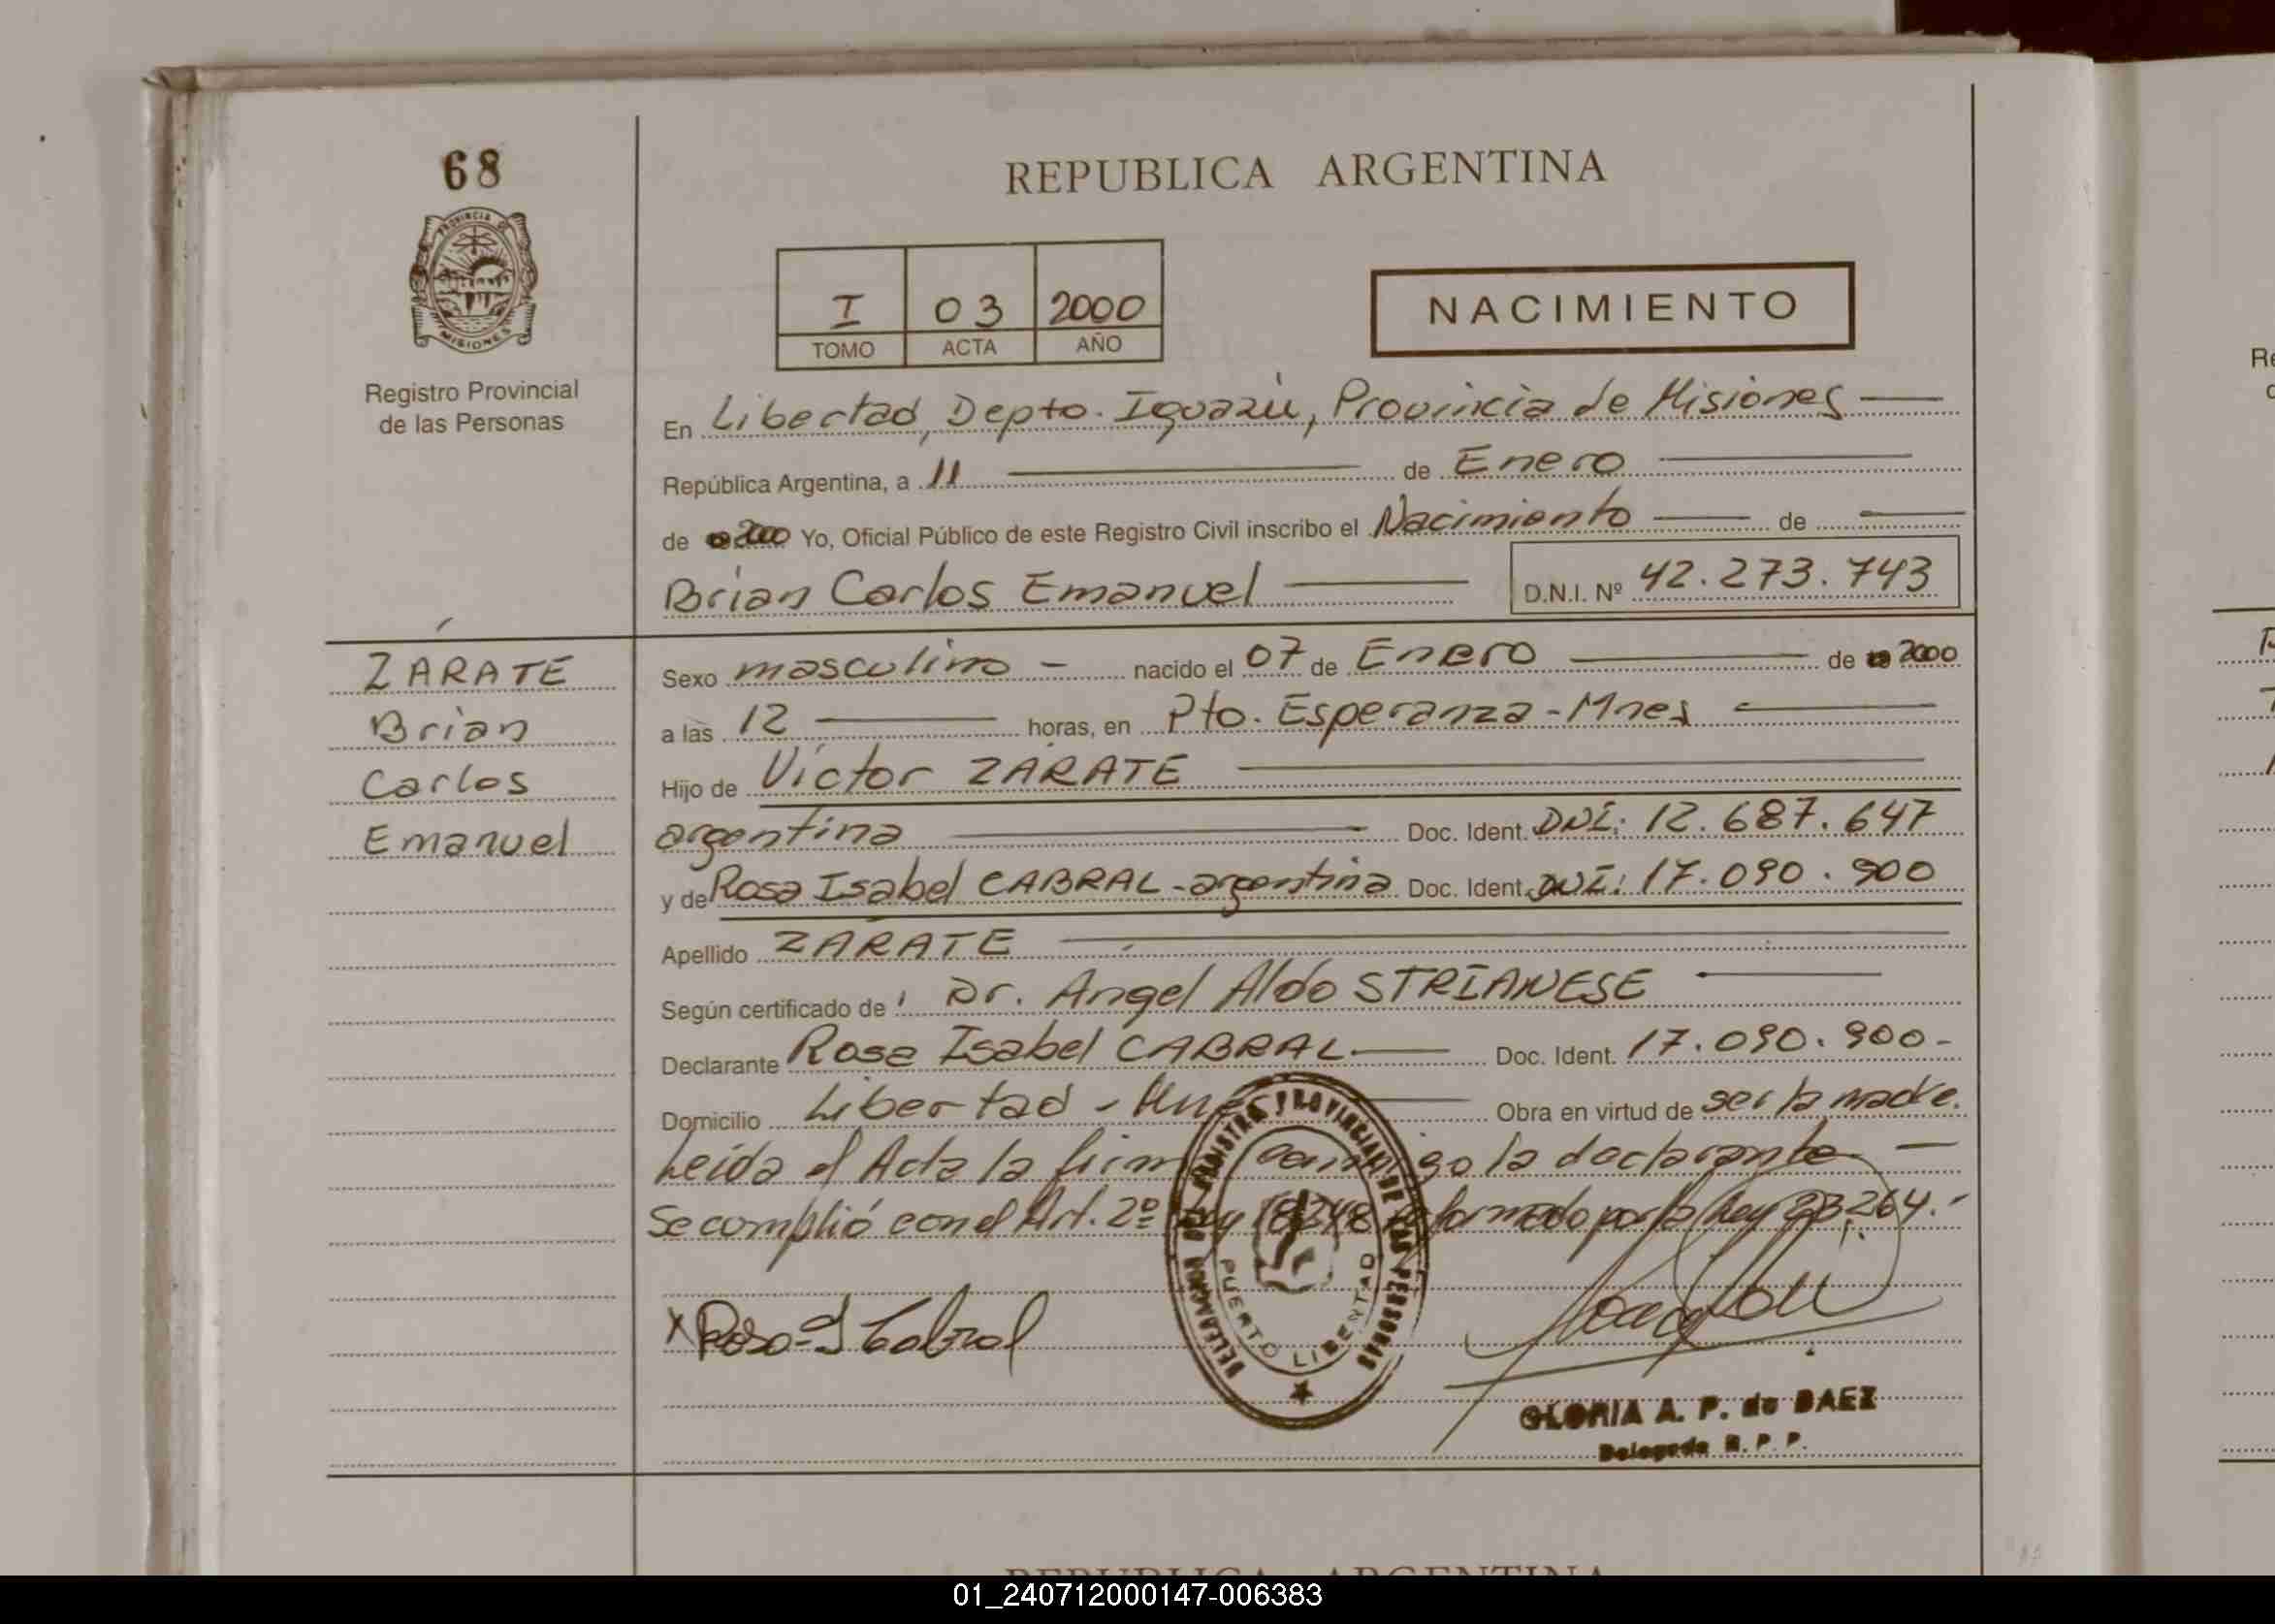 68
PROVINCIA DE
MISIONES
Registro Provincial
de las Personas
REPUBLICA ARGENTINA
I 03 2000
TOMO ACTA AÑO
NACIMIENTO
En Libertad, Depto. Iguazú, Provincia de Misiones
República Argentina, a 11 de Enero
de 2000 Yo, Oficial Público de este Registro Civil inscribo el Nacimiento de
Brian Carlos Emanuel D.N.I. Nº 42.273.743
ZÁRATE
Brian
Carlos
Emanuel
Sexo masculino - nacido el 07 de Enero de 2000
a las 12 horas, en Pto. Esperanza - Mnes
Hijo de Víctor ZÁRATE
argentina Doc. Ident. DNI: 12.687.647
y de Rosa Isabel CABRAL - argentina Doc. Ident. DNI: 17.090.900
Apellido ZARATE
Según certificado de Dr. Angel Aldo STRIANESE
Declarante Rosa Isabel CABRAL Doc. Ident. 17.090.900-
Domicilio Libertad - Mnes Obra en virtud de ser la madre.
Leída el Acta la firma conmigo la declarante
Se cumplió con el Art. 2º Ley 18248 reformado por la Ley 23.264.-
DELEGACION DEL REGISTRO PROVINCIAL DE LAS PERSONAS
PUERTO LIBERTAD
x Rosa I Cabral
GLORIA A. P. de BAEZ
Delegada R. P. P.
REPUBLICA ARGENTINA
01_240712000147-006383